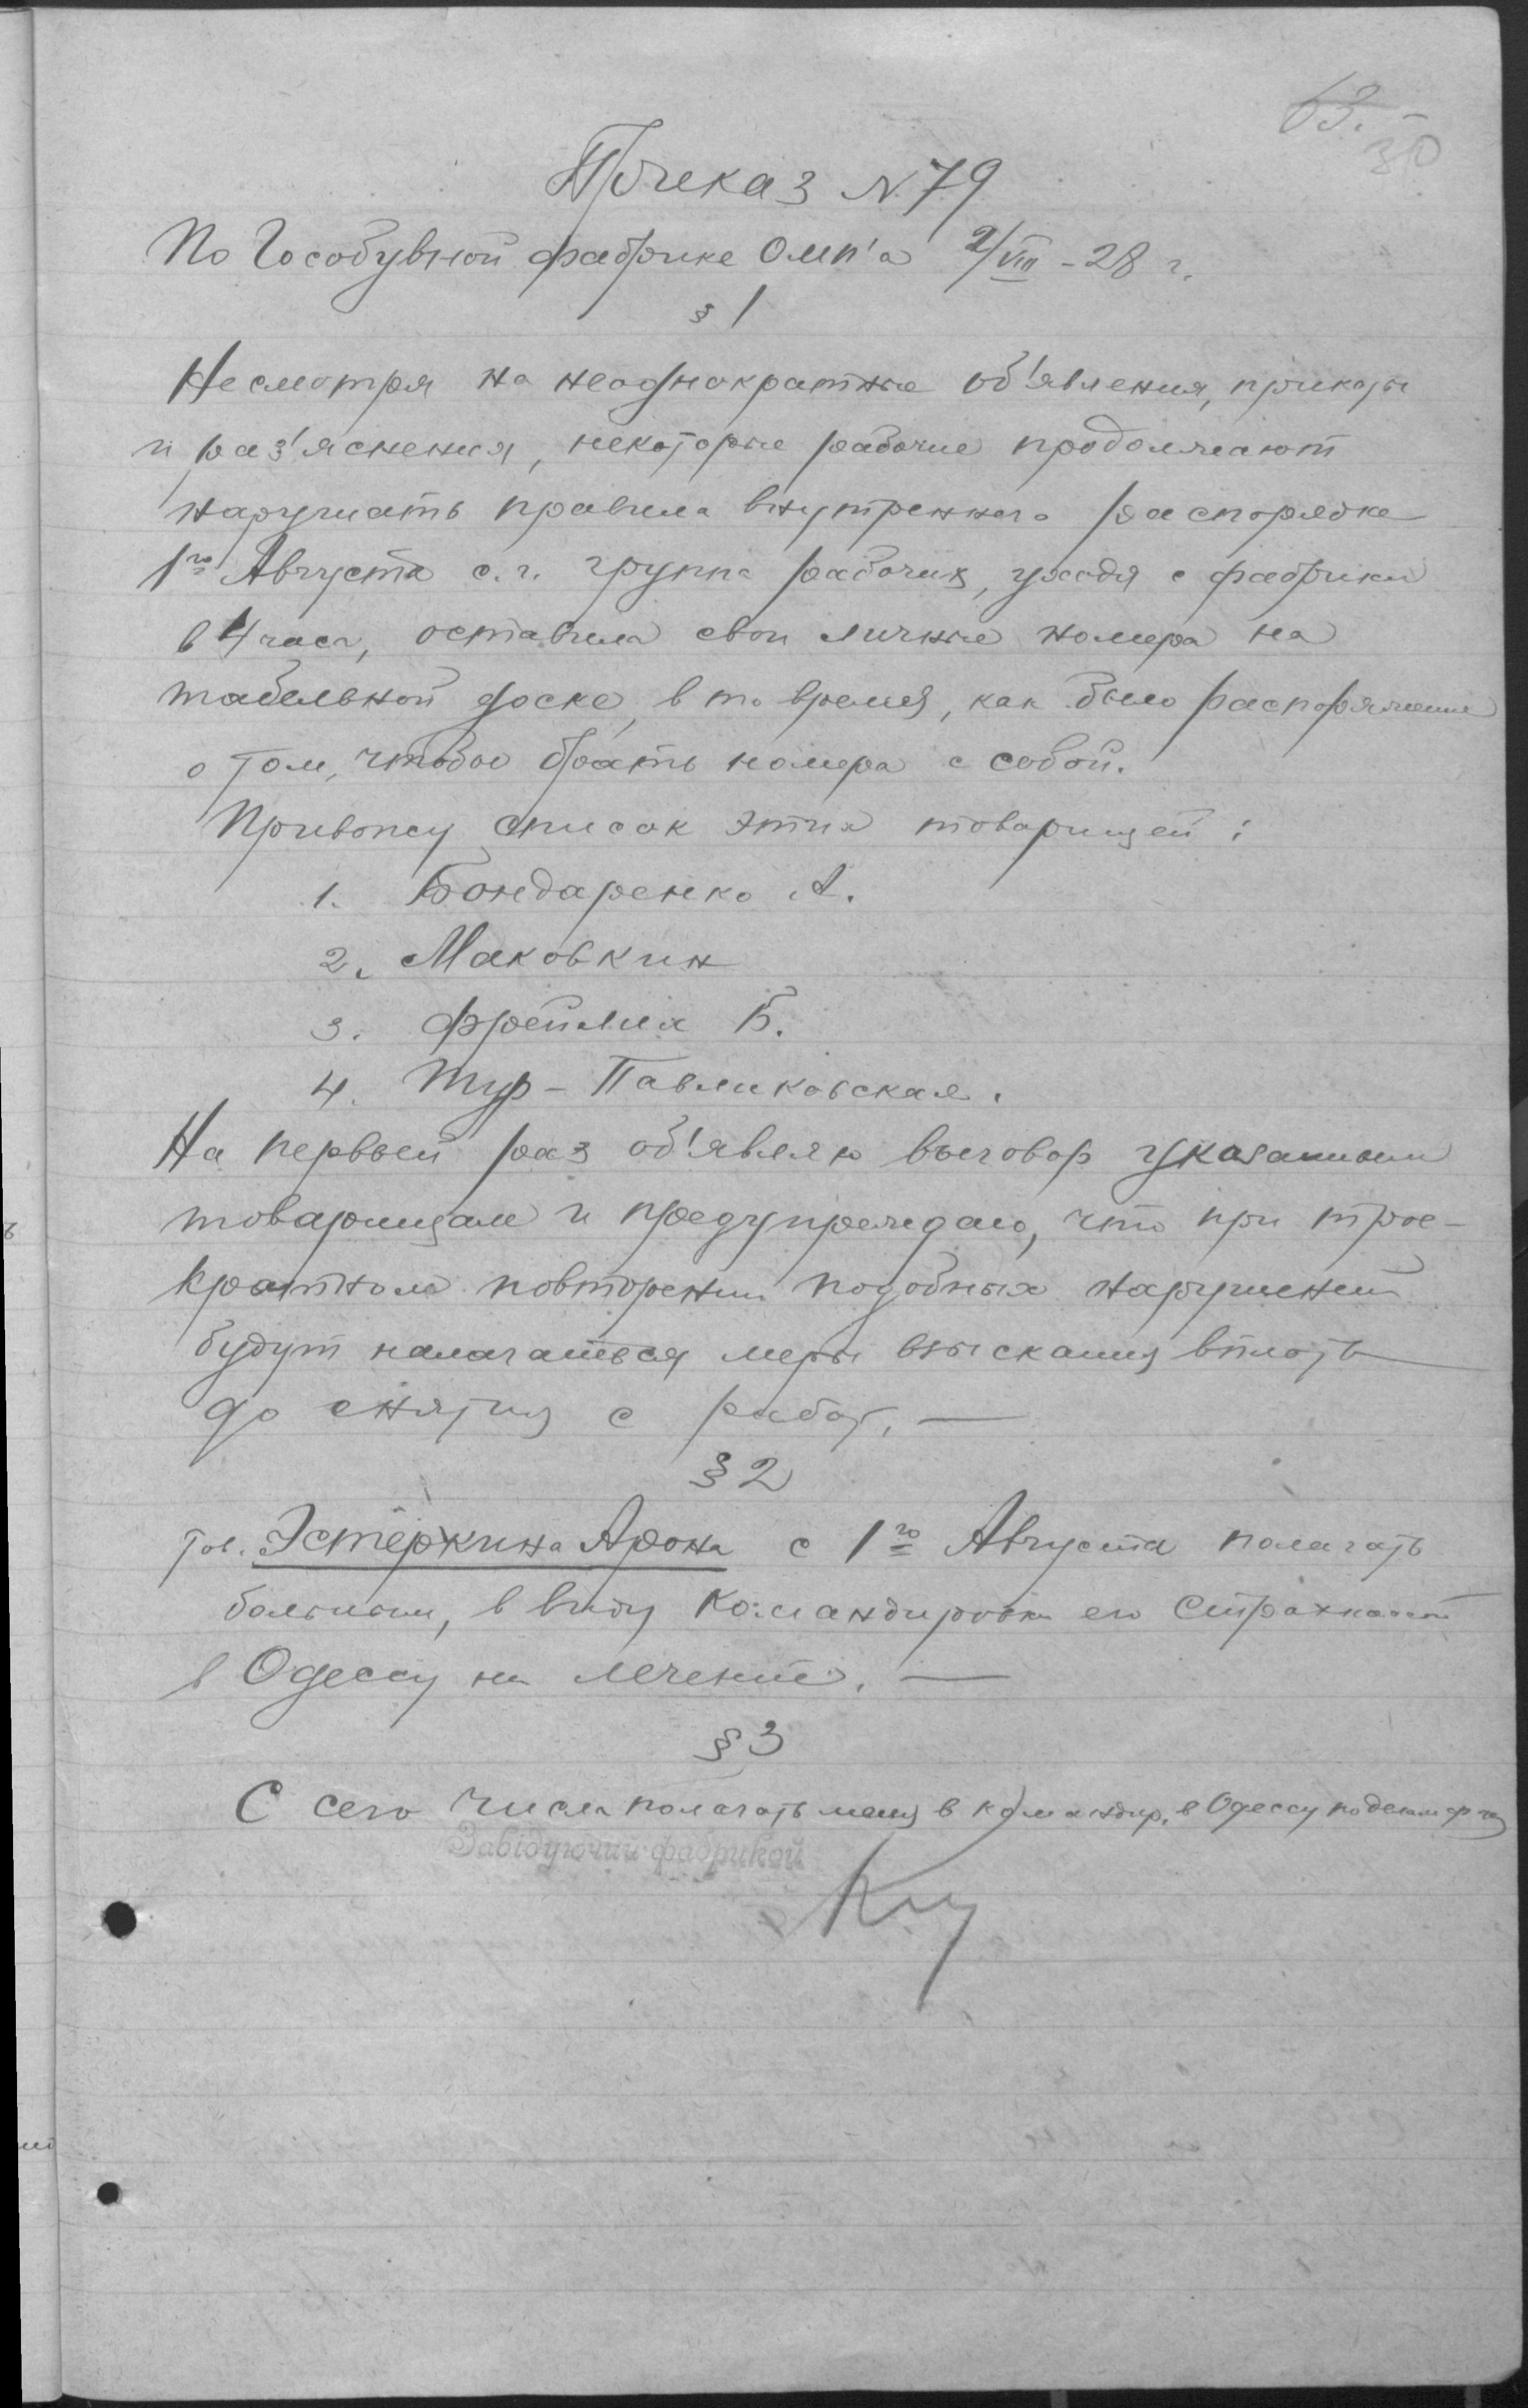 63.
30
Приказ N 79
По Гособувной фабрике ОМП'а 2/VIII-28 г.
§ 1
Несмотря на неоднократные об'явления, приказы
и раз'яснения, некоторые рабочие продолжают
нарушать правила внутреннего распорядка
1го Августа с.г. группа рабочих, уходя с фабрики
в 4 часа, оставила свои личные номера на
табельной доске, в то время, как было распоряжение
о том, чтобы брать номера с собой.
Привожу список этих товарищей:
1. Бондаренко А.
2. Маковкин
3. Фрейлих Б.
4. Тур-Павликовская.
На первый раз об'являю выговор указанным
товарищам и предупреждаю, что при трое-
кратном повторении подобных нарушений
будут налагаться меры взыскания вплоть
до снятия с работ. —
§ 2
Тов. Эстеркина Арона с 1го Августа полагать
больным, в виду командировки его Страхкассой
в Одессу на лечение. —
§ 3
С сего числа полагать меня в командир. в Одессу по делам ф-ки
Завідуючий фабрикой